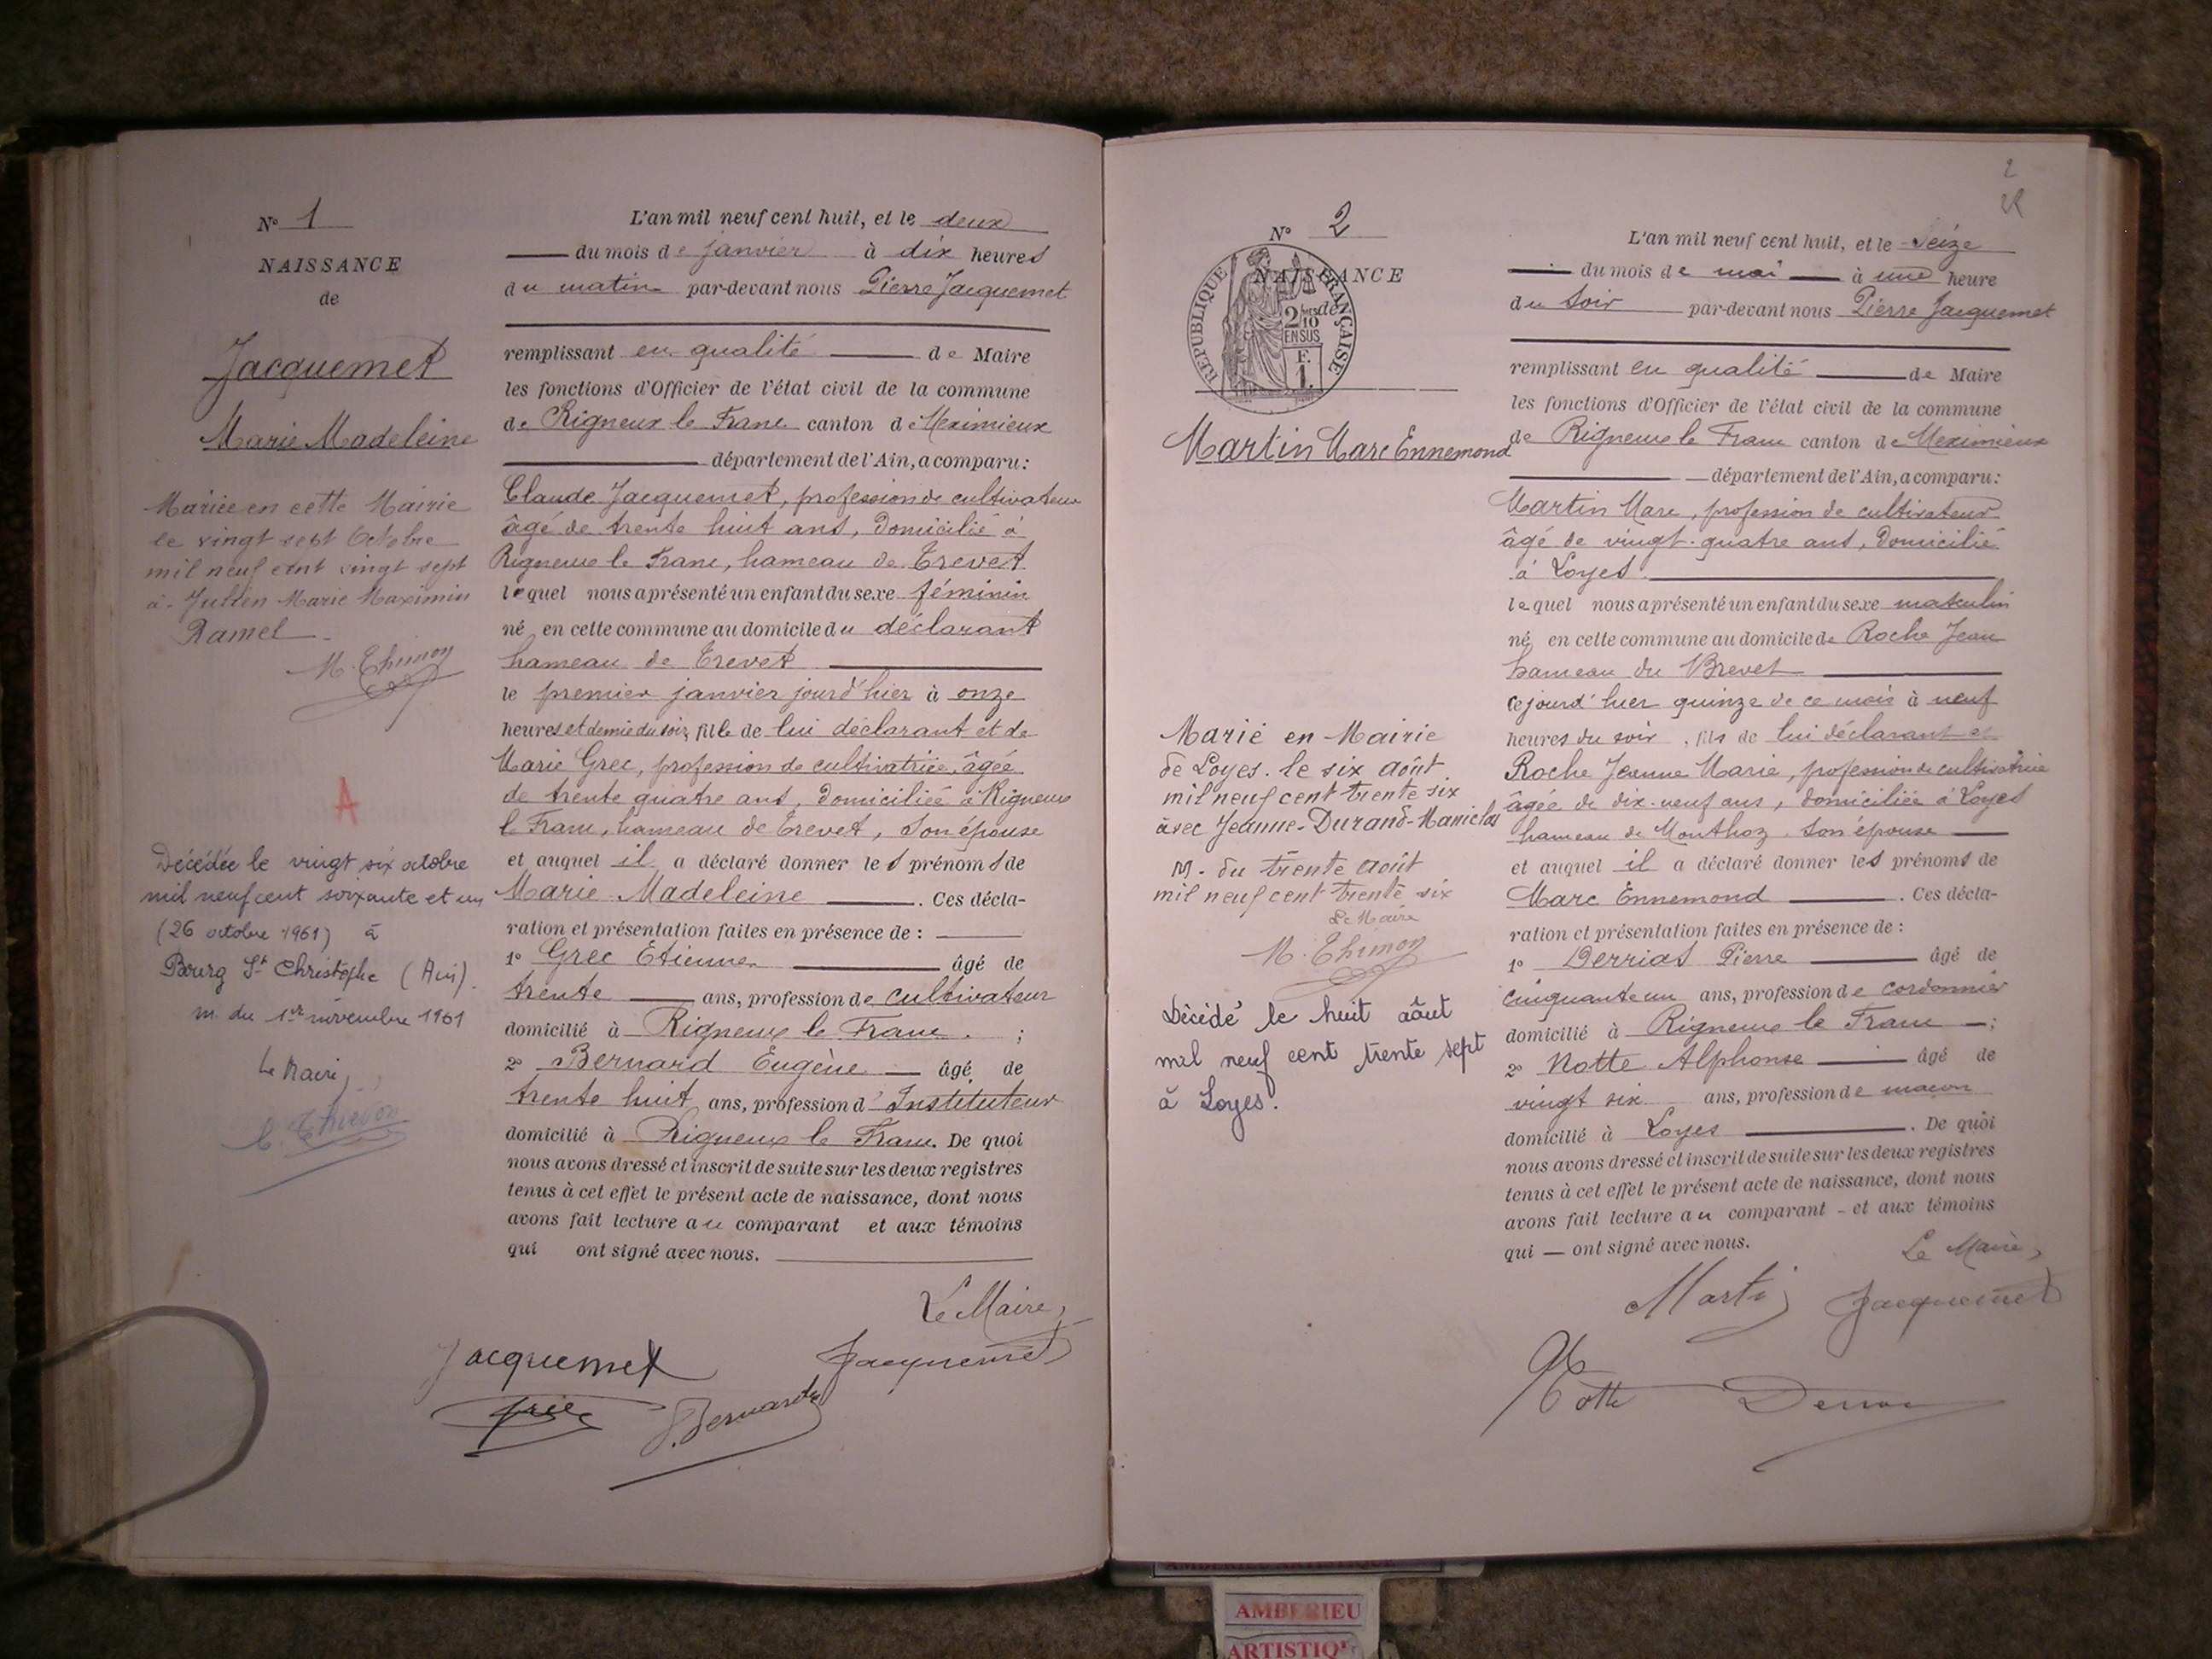 N° 1
NAISSANCE
de
Jacquemet
Marie Madeleine
Mariée en cette Mairie
le vingt sept Octobre
mil neuf cent vingt sept
à Julien Marie Maximin
Ramel
M. Thimon
A
Décédée le vingt six octobre
mil neuf cent soixante et un
(26 octobre 1961) à
Bourg St Christophe (Ain).
m. du 1er novembre 1961
Le Maire,
L'an mil neuf cent huit, et le deux
du mois de janvier à dix heures
du matin par-devant nous Pierre Jacquemet
remplissant en qualité de Maire
les fonctions d'Officier de l'état civil de la commune
de Rigneux le Franc canton de Meximieux
département de l'Ain, a comparu:
Claude Jacquemet, profession de cultivateur
âgé de trente huit ans, domicilié à
Rigneux le Franc, hameau de Crevet
lequel nous a présenté un enfant du sexe féminin
né en cette commune au domicile du déclarant
hameau de Crevet
le premier janvier jourd'hier à onze
heures et demie du soir, fille de lui déclarant et de
Marie Grec, profession de cultivatrice, âgée
de trente quatre ans, domiciliée à Rigneux
le Franc, hameau de Crevet, son épouse
et auquel il a déclaré donner les prénoms de
Marie Madeleine. Ces décla-
ration et présentation faites en présence de :
1° Grec Etienne âgé de
trente ans, profession de cultivateur
domicilié à Rigneux le Franc. ;
2° Bernard Eugène âgé de
trente huit ans, profession d'Instituteur
domicilié à Rigneux le Franc. De quoi
nous avons dressé et inscrit de suite sur les deux registres
tenus à cet effet le présent acte de naissance, dont nous
avons fait lecture au comparant et aux témoins
qui ont signé avec nous.
Le Maire,
Jacquemet Jacquemet
Grec Bernard
2
N° 2
NAISSANCE
de
REPUBLIQUE FRANÇAISE
2/10
EN SUS
F.
1.
Martin Marc Ennemond
Marié en Mairie
de Loyes. le six août
mil neuf cent trente six
avec Jeanne-Durand-Maniclas
M. du trente août
mil neuf cent trente six
Le Maire
M. Thimon
Décédé le huit août
mil neuf cent trente sept
à Loyes.
L'an mil neuf cent huit, et le seize
du mois de mai à une heure
du soir par-devant nous Pierre Jacquemet
remplissant en qualité de Maire
les fonctions d'Officier de l'état civil de la commune
de Rigneux le Franc canton de Meximieux
département de l'Ain, a comparu:
Martin Marc, profession de cultivateur
âgé de vingt-quatre ans, domicilié
à Loyes.
lequel nous a présenté un enfant du sexe masculin
né, en cette commune au domicile de Roche Jean
hameau du Brevet
cejourd'huer quinze de ce mois à neuf
heures du soir, fils de lui déclarant et
Roche Jeanne Marie, profession de cultivatrice
âgée de dix-neuf ans, domiciliée à Loyes
hameau de Monthoz. son épouse
et auquel il a déclaré donner les prénoms de
Marc Ennemond. Ces décla-
ration et présentation faites en présence de :
1° Derrias Pierre âgé de
cinquante un ans, profession de cordonnier
domicilié à Rigneux le Franc ;
2° Notte Alphonse âgé de
vingt six ans, profession de maçon
domicilié à Loyes. De quoi
nous avons dressé et inscrit de suite sur les deux registres
tenus à cet effet le présent acte de naissance, dont nous
avons fait lecture au comparant - et aux témoins
qui — ont signé avec nous.
Le Maire,
Martin Jacquemet
Notte Derrias
AMBERIEU ARTISTIQUE
AMBERIEU
ARTISTIQ